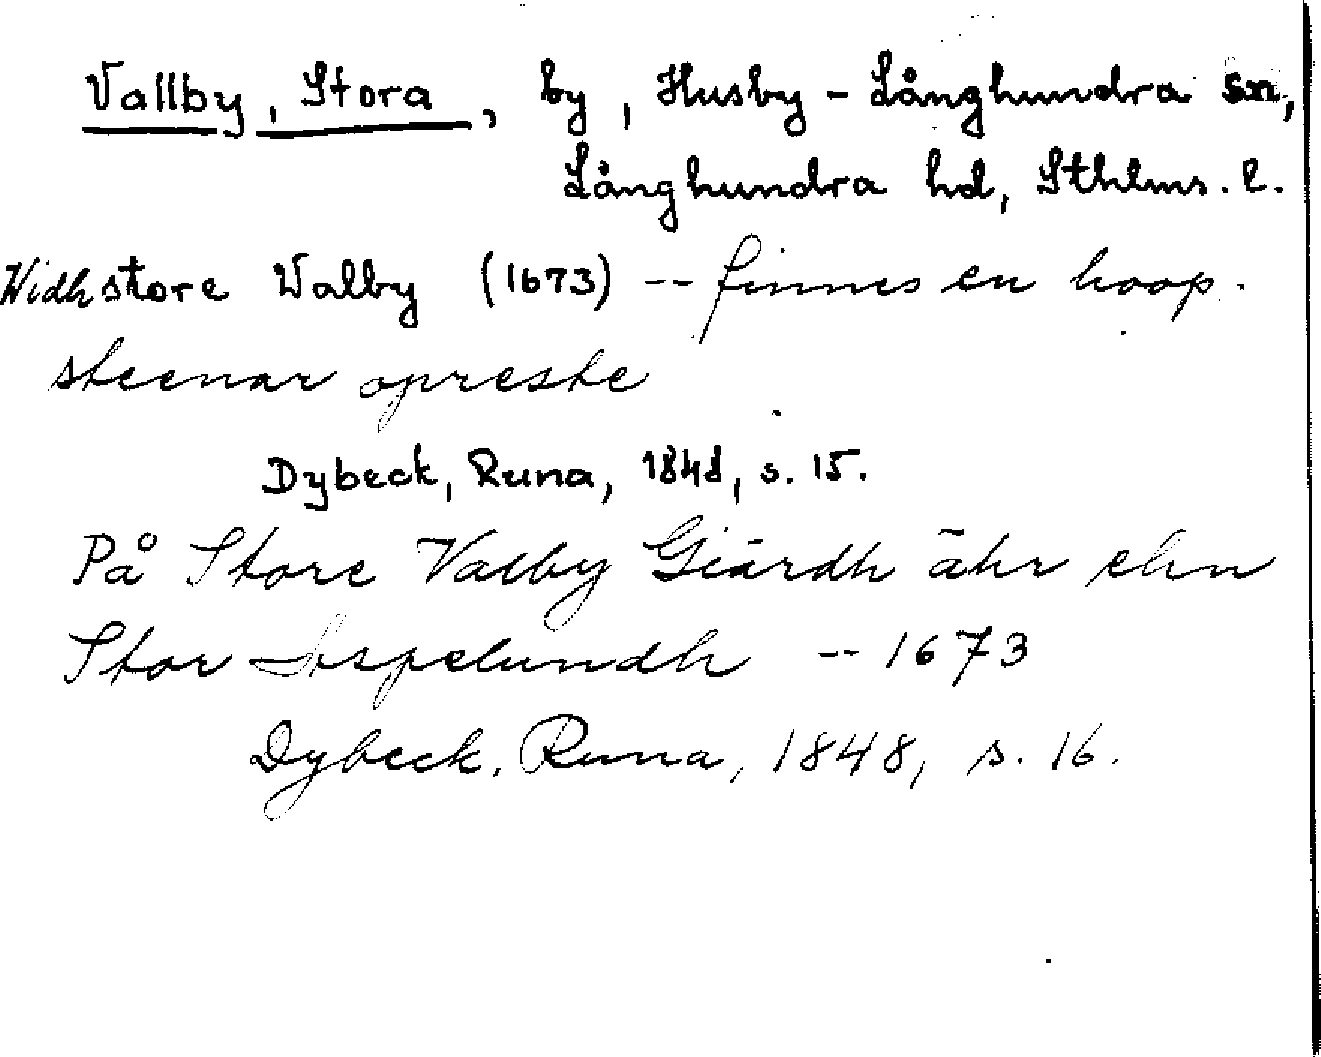 Vallby, Stora, by, Husby-Långhundra sn,
Långhundra hd, Sthlms. l.
Widh store Walby (1673) -- finnes en hoop
steenar opreste
Dybeck, Runa, 1848, s. 15.
På Store Valby Giärdh ähr ehn
Stor -- 1673
Dybeck, Runa, 1848, s. 16.